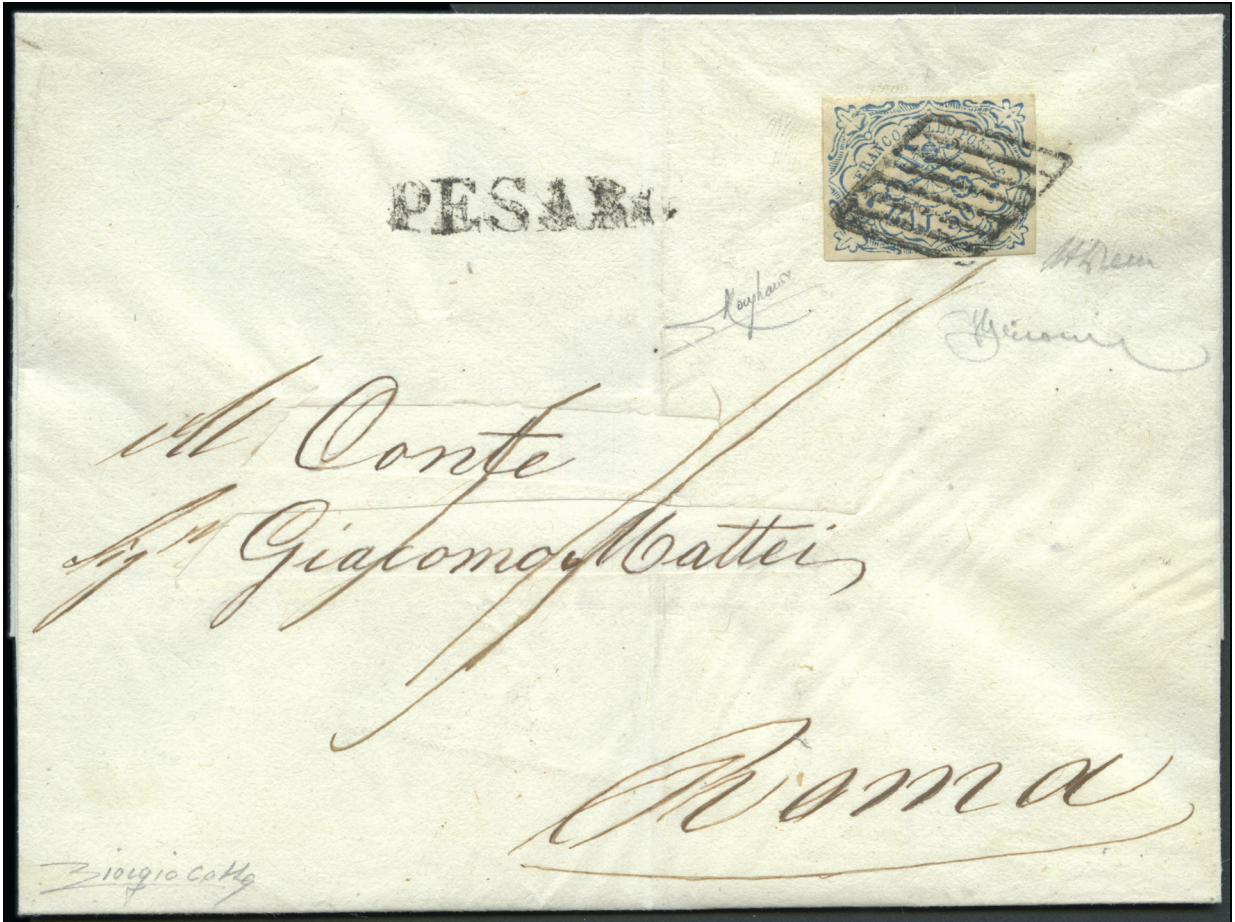 PESARO
FRANCO BOLLO POSTALE
BAJ 50
Al Conte
Sigr Giacomo Mattei
Roma